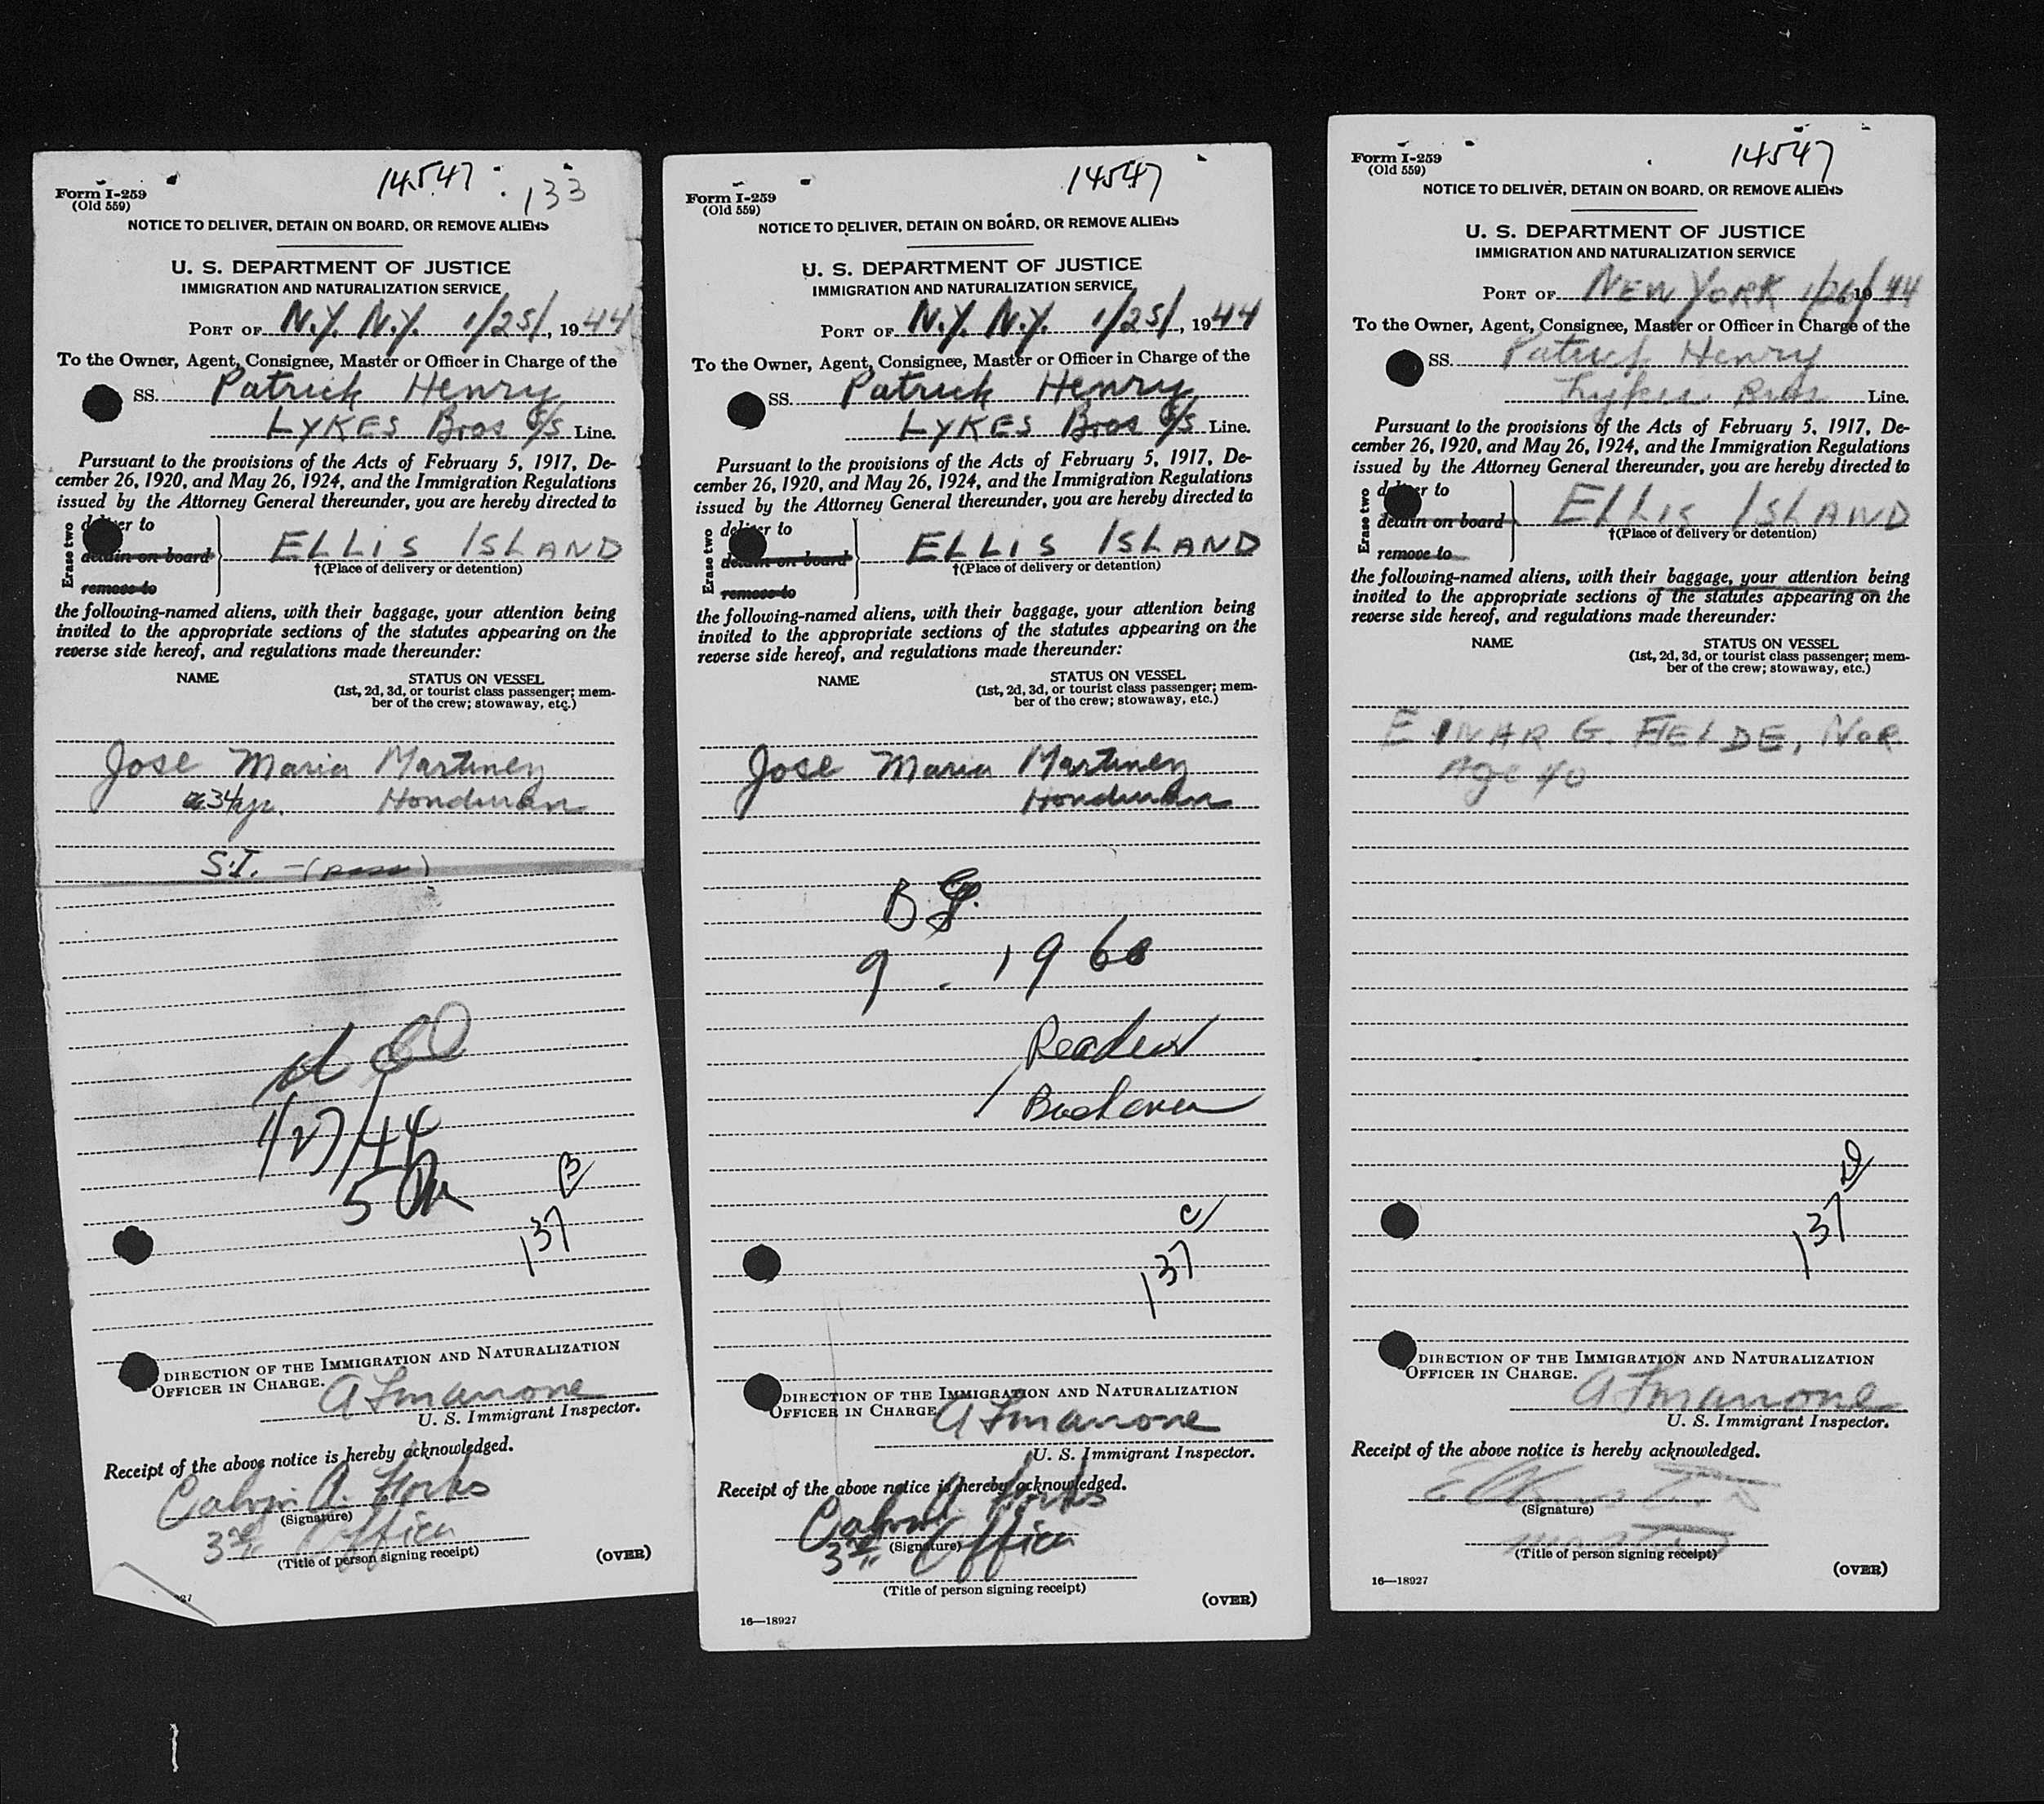 14547
133
Form I-259
(Old 559)
NOTICE TO DELIVER, DETAIN ON BOARD, OR REMOVE ALIENS
U. S. DEPARTMENT OF JUSTICE
IMMIGRATION AND NATURALIZATION SERVICE
PORT OF N.Y. N.Y. 1/25/, 1944
To the Owner, Agent, Consignee, Master or Officer in Charge of the
SS. Patrick Henry
LYKES Bros S/S Line.
Pursuant to the provisions of the Acts of February 5, 1917, De-
cember 26, 1920, and May 26, 1924, and the Immigration Regulations
issued by the Attorney General thereunder, you are hereby directed to
Erase two
deliver to
detain on board
remove to
ELLIS ISLAND
†(Place of delivery or detention)
the following-named aliens, with their baggage, your attention being
invited to the appropriate sections of the statutes appearing on the
reverse side hereof, and regulations made thereunder:
NAME
STATUS ON VESSEL
(1st, 2d, 3d, or tourist class passenger; mem-
ber of the crew; stowaway, etc.)
Jose Maria Martinez
34 yr. Honduran
S.I. - (pass)
1/27/44
B
137
DIRECTION OF THE IMMIGRATION AND NATURALIZATION
OFFICER IN CHARGE.
A Fmanone
U. S. Immigrant Inspector.
Receipt of the above notice is hereby acknowledged.
Calvin A. Forks
(Signature)
3rd Officer
(Title of person signing receipt)
(OVER)
27
14547
Form I-259
(Old 559)
NOTICE TO DELIVER, DETAIN ON BOARD, OR REMOVE ALIENS
U. S. DEPARTMENT OF JUSTICE
IMMIGRATION AND NATURALIZATION SERVICE
PORT OF N.Y. N.Y. 1/25/, 1944
To the Owner, Agent, Consignee, Master or Officer in Charge of the
SS. Patrick Henry
LYKES Bros S/S Line.
Pursuant to the provisions of the Acts of February 5, 1917, De-
cember 26, 1920, and May 26, 1924, and the Immigration Regulations
issued by the Attorney General thereunder, you are hereby directed to
Erase two
deliver to
detain on board
remove to
ELLIS ISLAND
†(Place of delivery or detention)
the following-named aliens, with their baggage, your attention being
invited to the appropriate sections of the statutes appearing on the
reverse side hereof, and regulations made thereunder:
NAME
STATUS ON VESSEL
(1st, 2d, 3d, or tourist class passenger; mem-
ber of the crew; stowaway, etc.)
Jose Maria Martinez
Honduran
9 - 1960
C
137
DIRECTION OF THE IMMIGRATION AND NATURALIZATION
OFFICER IN CHARGE
A Fmanone
U. S. Immigrant Inspector.
Receipt of the above notice is hereby acknowledged.
Calvin A. Forks
(Signature)
3rd Officer
(Title of person signing receipt)
(OVER)
16—18927
14547
Form I-259
(Old 559)
NOTICE TO DELIVER, DETAIN ON BOARD, OR REMOVE ALIENS
U. S. DEPARTMENT OF JUSTICE
IMMIGRATION AND NATURALIZATION SERVICE
PORT OF NEW YORK 1/26/, 1944
To the Owner, Agent, Consignee, Master or Officer in Charge of the
SS. Patrick Henry
Lykes Bros Line.
Pursuant to the provisions of the Acts of February 5, 1917, De-
cember 26, 1920, and May 26, 1924, and the Immigration Regulations
issued by the Attorney General thereunder, you are hereby directed to
Erase two
deliver to
detain on board
remove to
ELLIS ISLAND
†(Place of delivery or detention)
the following-named aliens, with their baggage, your attention being
invited to the appropriate sections of the statutes appearing on the
reverse side hereof, and regulations made thereunder:
NAME
STATUS ON VESSEL
(1st, 2d, 3d, or tourist class passenger; mem-
ber of the crew; stowaway, etc.)
EINAR G. FJELDE, NOR
Age 40
D
137
DIRECTION OF THE IMMIGRATION AND NATURALIZATION
OFFICER IN CHARGE.
A Fmanone
U. S. Immigrant Inspector.
Receipt of the above notice is hereby acknowledged.
(Signature)
master
(Title of person signing receipt)
(OVER)
16—18927